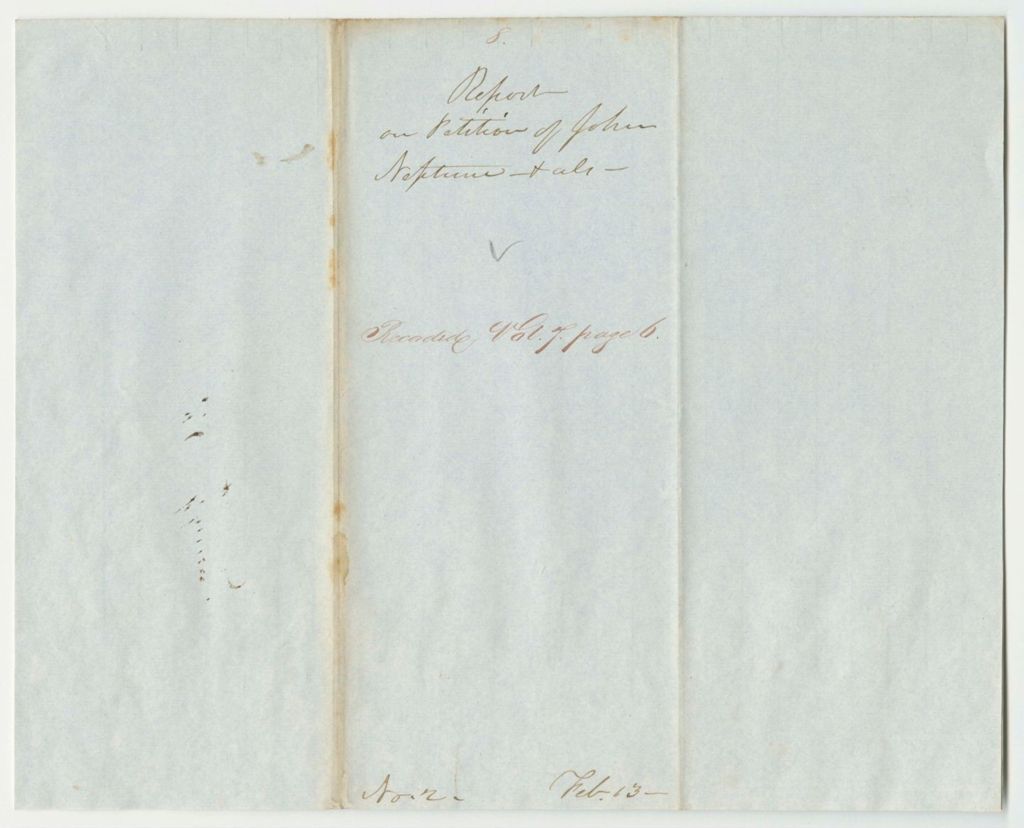 8.
Report
on Petition of John
Neptune - & als -
Recorded, Vol. 7. page 6.
No. 2. Feb. 13 -